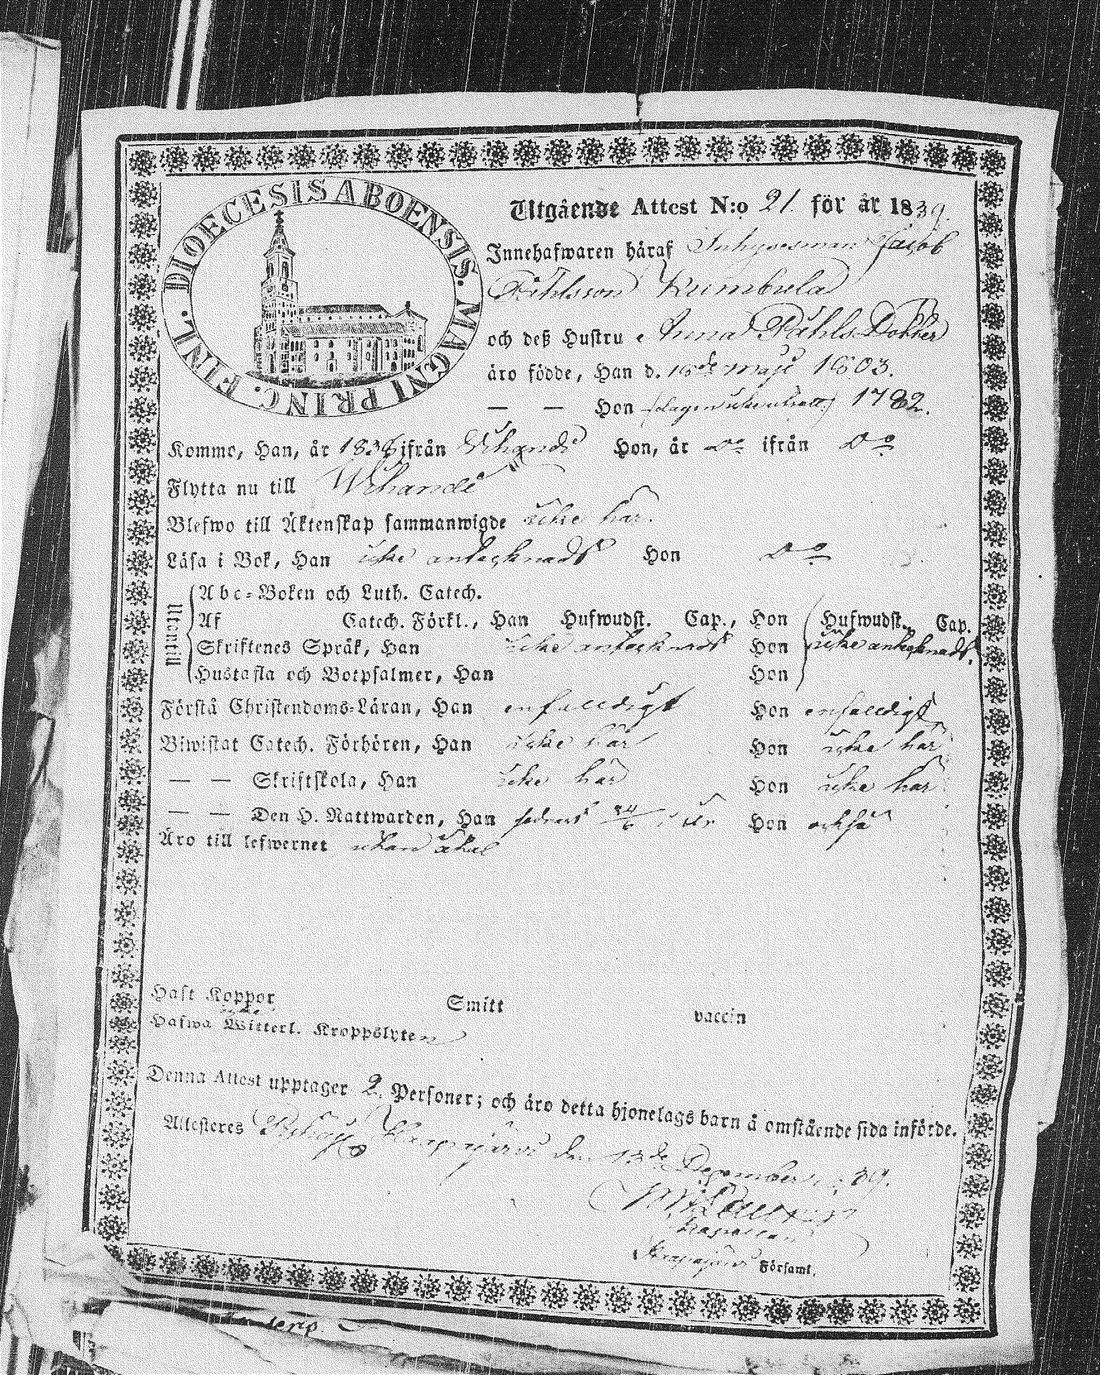 DIOECESIS ABOENSIS. MAGNI PRINC. FINL.
Utgående Attest N:o 21. för år 1839.
Innehafwaren häraf Inhysesman Jacob
Påhlsson Kumbula
och deß Hustru Anna Påhls Dotter
äro födde, Han d. 16de maji 1803.
— — Hon 1782.
Kommo, Han, år 1838 ifrån Urhandi Hon, år Do ifrån Do
Flytta nu till Urhandi
Blefwo till Äktenskap sammanwigde icke här.
Läsa i Bok, Han icke anteknadt Hon Do
Utantill
Abc-Boken och Luth. Catech.
Af Catech. Förkl., Han Hufwudst. Cap., Hon Hufwudst. Cap.
Skriftenes Språk, Han icke anteknadt Hon icke anteknadt.
Hustafla och Botpsalmer, Han Hon
Förstå Christendoms-Läran, Han enfaldigt Hon enfaldigt
Biwistat Catech. Förhören, Han icke här Hon icke här
— — Skriftskola, Han icke här Hon icke här
— — Den H. Nattwarden, Han Hon också
Äro till lefwernet utan åtal
Haft Koppor Smitt vaccin
icke
Hafwa Witterl. Kroppslyten
Denna Attest upptager 2. Personer; och äro detta hjonelags barn å omstående sida införde.
Attesteres den 13de December 39.
Församl.